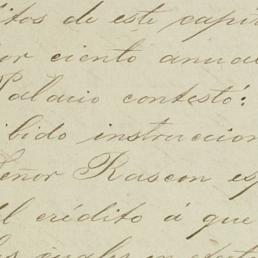 itos de este capit
or ciento anua
Palacio contestó:
ibido instruccion
eñor Rascon es
el crédito á que